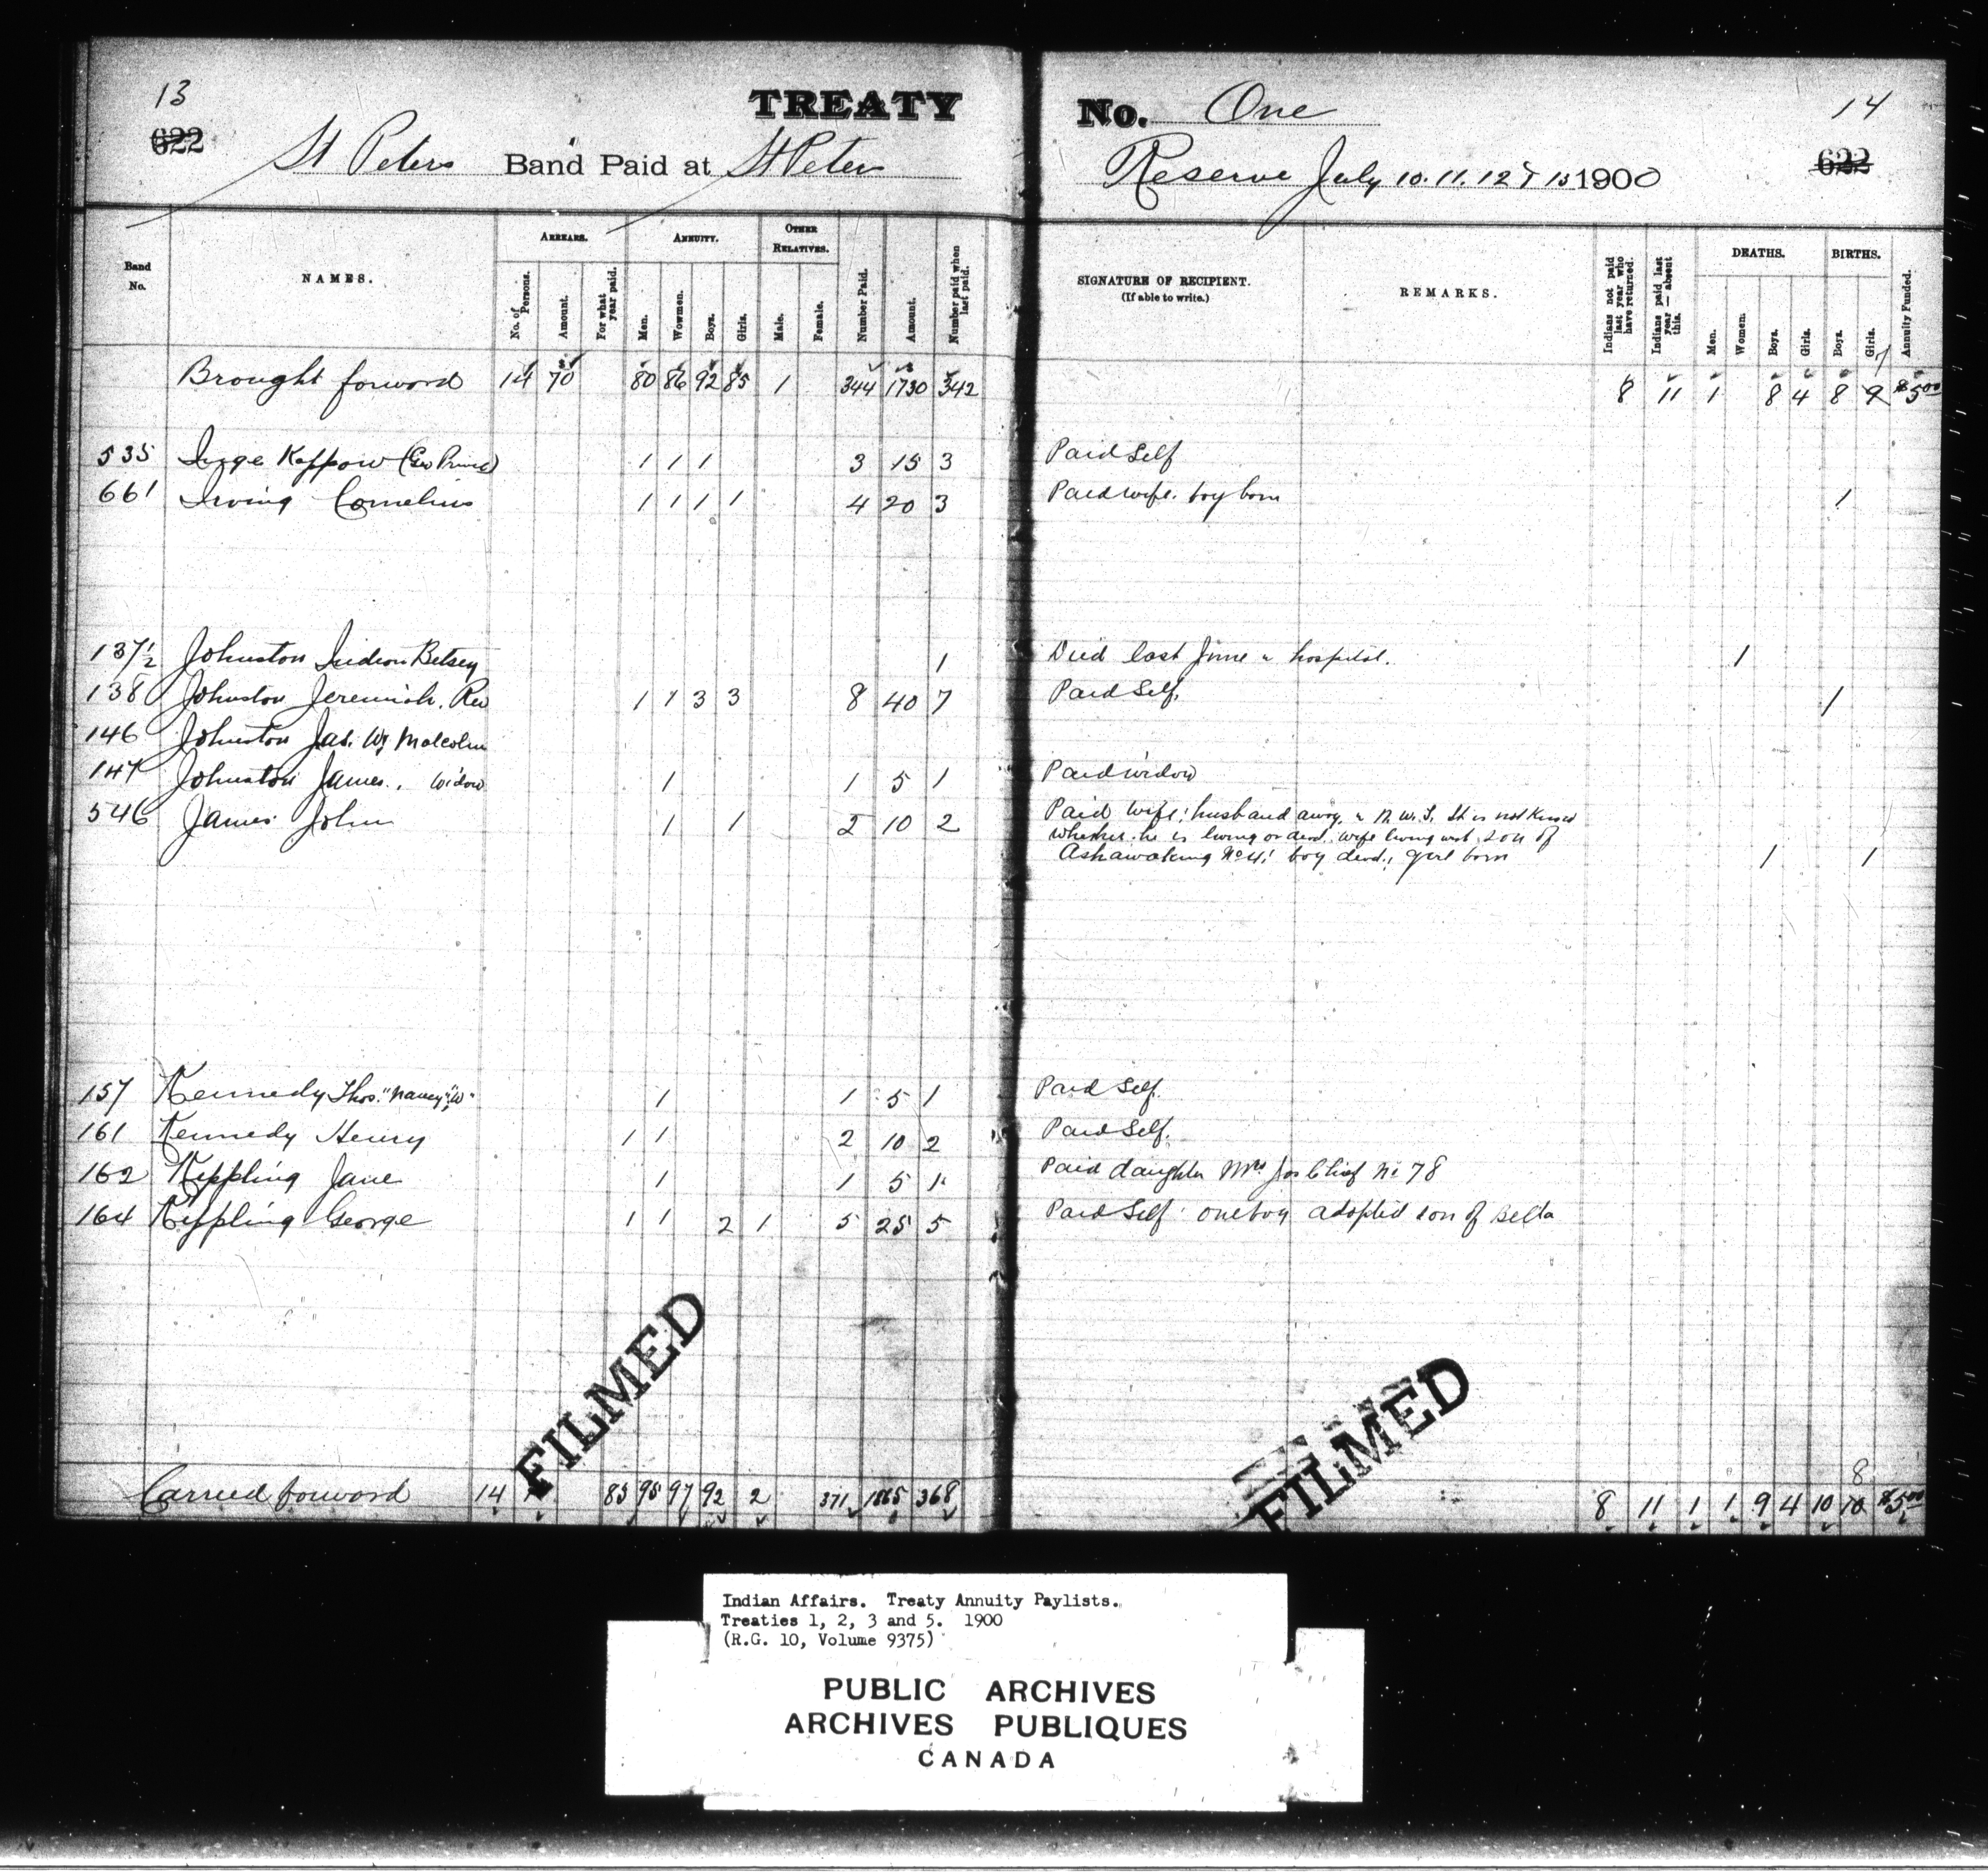 13
TREATY No. One 14
622 St Peters Band Paid at St Peters Reserve July 10. 11. 12 & 13 1900 622
Band No. NAMES. ARREARS. ANNUITY. OTHER RELATIVES. Number Paid. Amount. Number paid when last paid. SIGNATURE OF RECIPIENT. (If able to write.) REMARKS. Indians not paid last year who have returned. Indians paid last year — absent this. DEATHS. BIRTHS. Annuity Funded.
No. of Persons. Amount. For what year paid. Men. Wowmen. Boys. Girls. Male. Female. Men. Women. Boys. Girls. Boys. Girls.
Brought forword 14 70 80 86 92 85 1 344 1730 342 8 11 1 8 4 8 9 $5.00
535 Kappow 1 1 1 3 15 3 Paid Self
661 Irving Cornelius 1 1 1 1 4 20 3 Paid wife. boy born 1
137½ Johnston Betsey 1 Died last June hospital. 1
138 Johnston Jeremiah. Rev 1 1 3 3 8 40 7 Paid Self. 1
146 Johnston Jas. Malcolm
147 Johnston James. Widow 1 1 5 1 Paid widow
546 James John 1 1 2 10 2 Paid wife; husband away. N. W. T. It is not Known
whether he is living or dead. wife living with son of
Ashawakeing No 4; boy dead; girl born 1 1
157 Kennedy Thos. "Nancy" "W" 1 1 5 1 Paid Self.
161 Kennedy Henry 1 1 2 10 2 Paid Self.
162 Kippling Jane 1 1 5 1 Paid daughter Mrs Jos Chief No 78
164 Kippling George 1 1 2 1 5 25 5 Paid Self. one boy adopted son of Bella
FILMED
FILMED
8
Carried forword 14 83 95 97 92 2 371 1865 368 8 11 1 1 9 4 10 10 $5.00
Indian Affairs. Treaty Annuity Paylists.
Treaties 1, 2, 3 and 5. 1900
(R.G. 10, Volume 9375)
PUBLIC ARCHIVES
ARCHIVES PUBLIQUES
CANADA